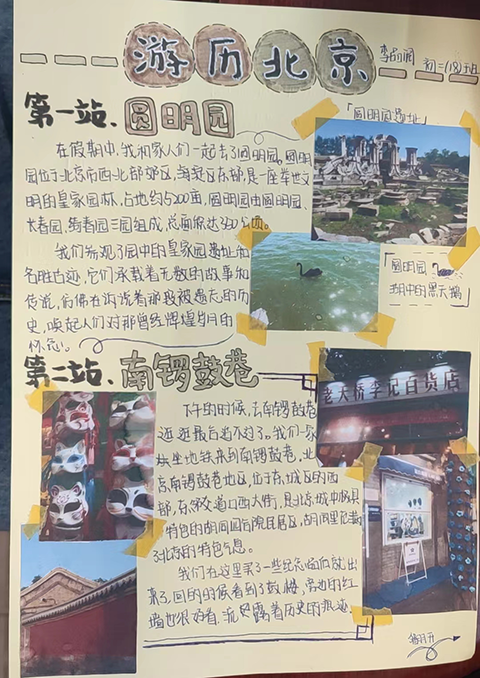 游历北京
初二(18)班
第一站、圆明园
「圆明园遗址」
在假期中,我和家人们一起去了圆明园。圆明
园位于北京市西北部郊区,海淀区东部,是一座举世文
明的皇家园林,占地约5200亩,圆明园由圆明园、
长春园、绮春园三园组成,总面积达350公顷。
我们参观了园中的皇家园遗址和
名胜古迹,它们承载着无数的故事和
传说,仿佛在诉说着那段被遗忘的历
史,唤起人们对那曾经辉煌岁月的
怀念。
「圆明园
湖中的黑天鹅」
第二站、南锣鼓巷
下午的时候,去南锣鼓巷
逛逛最合适不过了。我们一家
坐地铁来到南锣鼓巷,北
京南锣鼓巷地区,位于东城区的西
部,东
交道口西大街,是北京城中极具
特色的胡同四合院民居区,胡同里充满
了北京的特色气息。
我们在这里买了一些纪念品后就出
来了,回的时候看到了鼓楼,旁边的红
墙也很好看,流露着历史的痕迹。
老大桥李记百货店